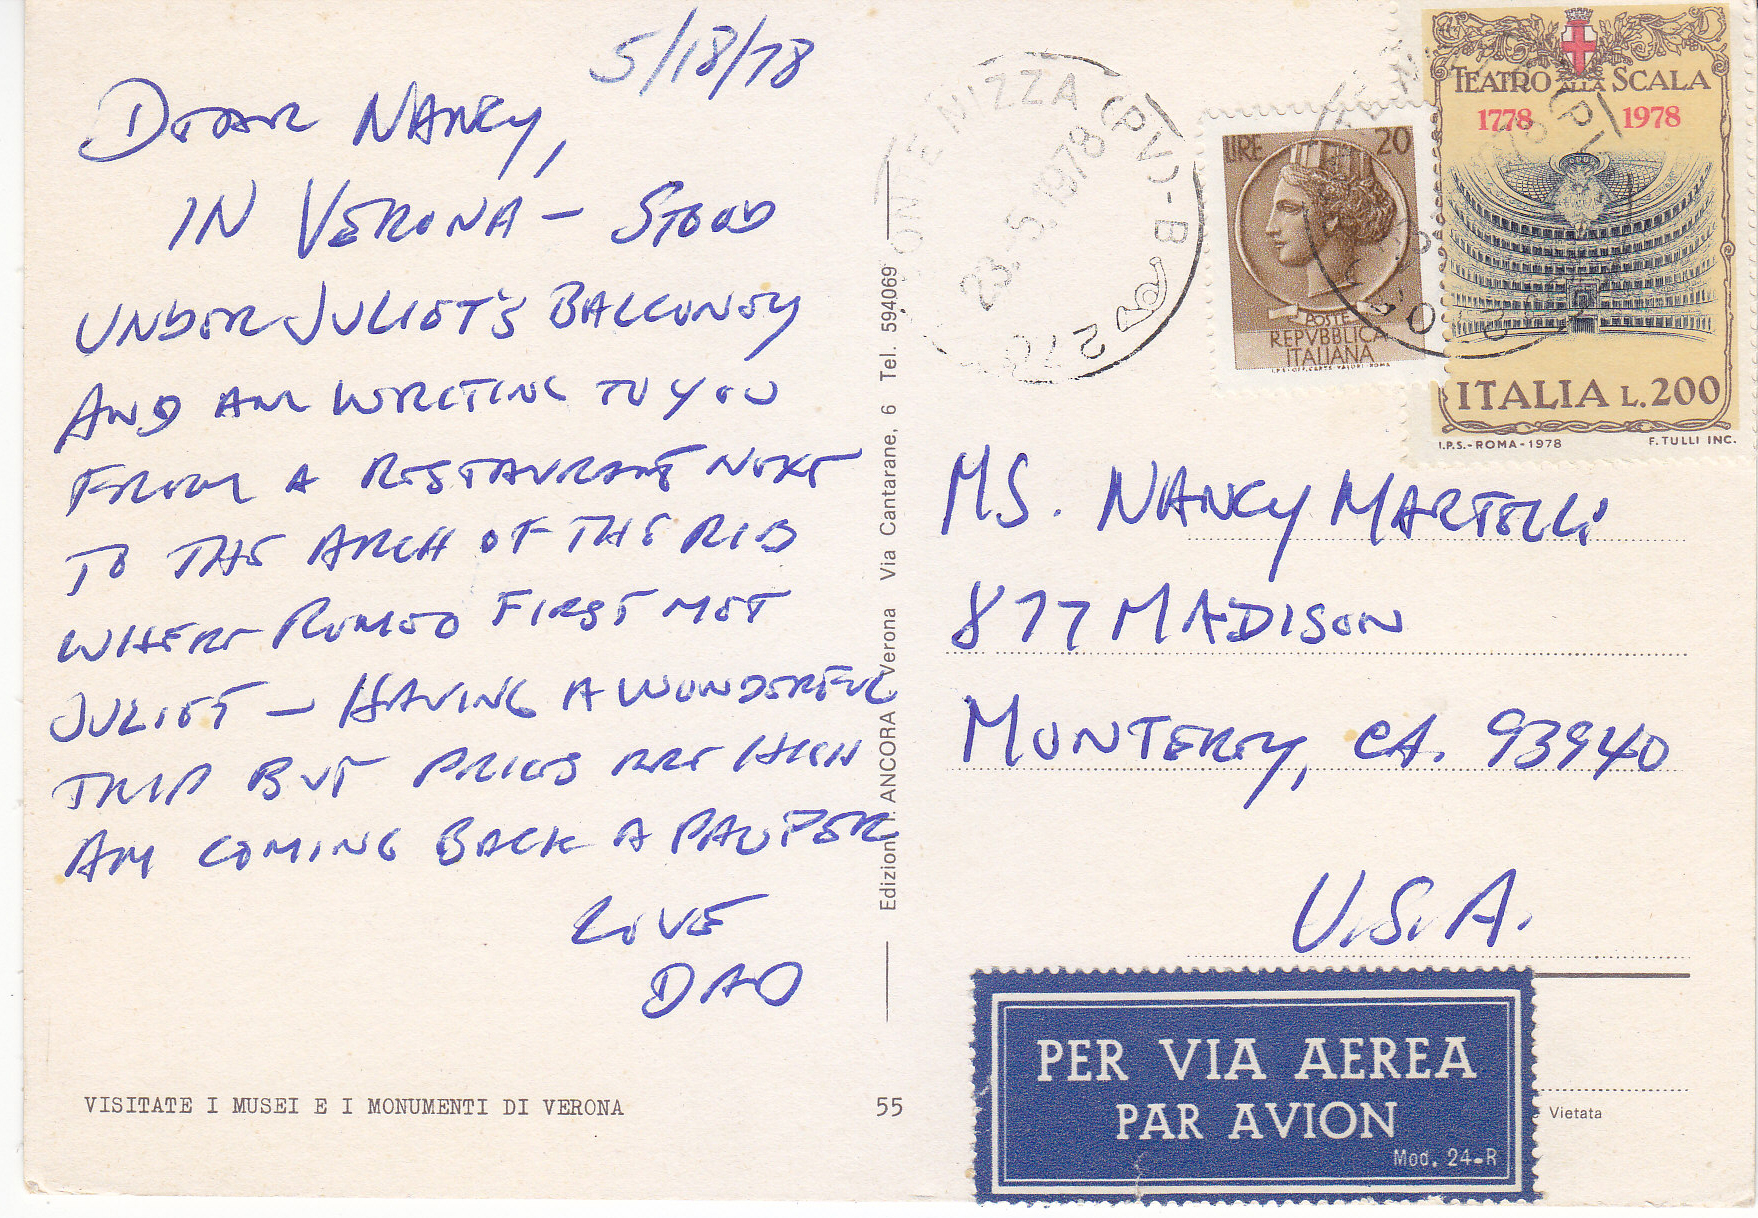 5/18/78
DEAR NANCY,
IN VERONA — STOOD
UNDER JULIET'S BALCONEY
AND AM WRITING TO YOU
FROM A RESTAURANT NEXT
TO THE ARCH OF THE RIB
WHERE ROMEO FIRST MET
JULIET — HAVING A WONDERFUL
TRIP BUT PRICES ARE HIGH
AM COMING BACK A PAUPER
LOVE
DAD
VISITATE I MUSEI E I MONUMENTI DI VERONA
55
Edizioni ANCORA Verona Via Cantarane, 6 Tel. 594069
PONTE NIZZA (PV) - B
23.-5.1978
270
LIRE 20
POSTE
REPVBBLICA
ITALIANA
I.P.S. OFF. CARTE VALORI ROMA
TEATRO ALLA SCALA
1778 1978
ITALIA L.200
I.P.S.-ROMA-1978 F. TULLI INC.
MS. NANCY MARTELLI
877 MADISON
MONTEREY, CA. 93940
U.S.A.
PER VIA AEREA
PAR AVION
Mod. 24-R
Vietata